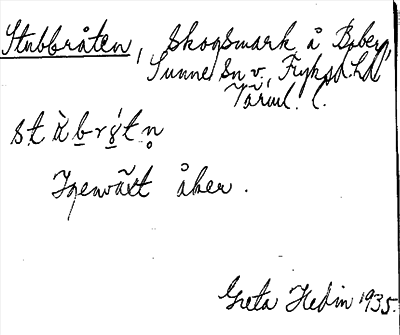 Stubbråten, skogsmark å Boberg,
Sunne sn v., Fryksd. hd
Värml. l.
Igenväxt åker.
Greta Hedin 1935.